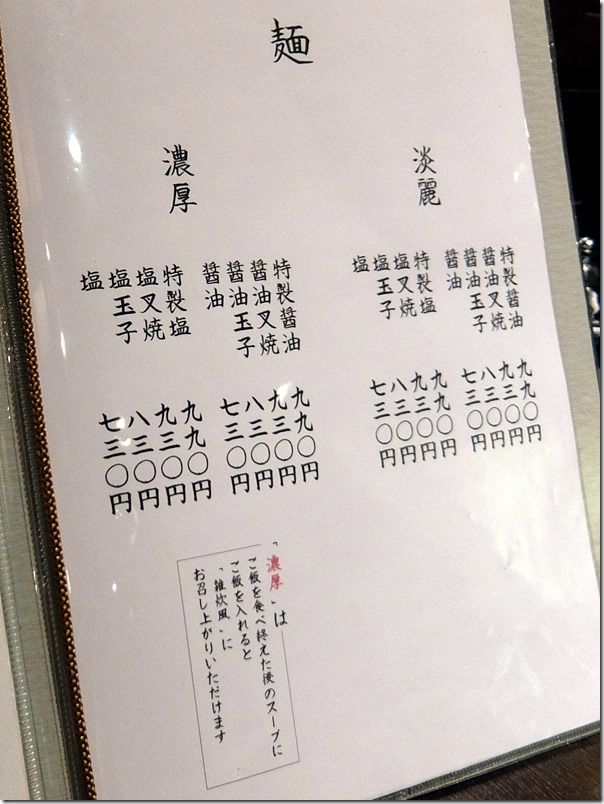 麺
淡麗
特製醤油 九九〇円
醤油叉焼 九三〇円
醤油玉子 八三〇円
醤油 七三〇円
特製塩 九九〇円
塩叉焼 九三〇円
塩玉子 八三〇円
塩 七三〇円
濃厚
特製醤油 九九〇円
醤油叉焼 九三〇円
醤油玉子 八三〇円
醤油 七三〇円
特製塩 九九〇円
塩叉焼 九三〇円
塩玉子 八三〇円
塩 七三〇円
「濃厚」は
ご飯を食べ終えた後のスープに
ご飯を入れると
「雑炊風」に
お召し上がりいただけます